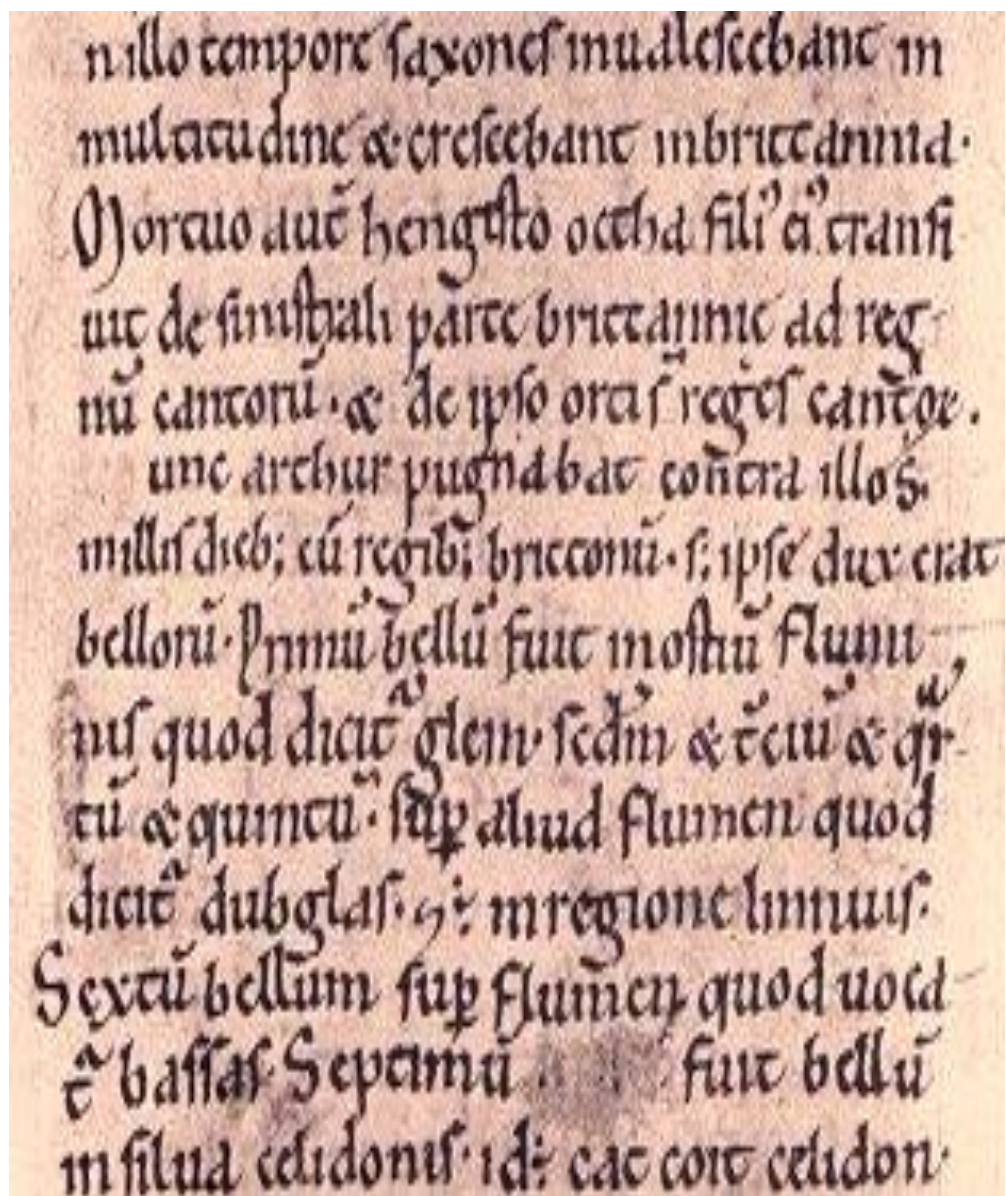 n illo tempore saxones inualescebant in
multitudine & crescebant in brittannia.
Mortuo aut̄ hengisto octha fili᾿ ei᾿ transi
uit de sinistrali parte brittannie ad reg
nū cantorū. & de ipso orti s̄ reges cantor̄.
unc arthur pugnabat contra illos.
in illis dieb; cū regib; brittonū. s; ipse dux erat
bellorū. Primū bellū fuit in ostiū flumi
nis quod dicit᷑ glein. scd̄m & t̄ciū & qr̄
tū & quintū. sup̱ aliud flumen quod
dicit᷑ dubglas. ⁊ ÷ in regione linnuis.
Sextū bellum sup̱ flumen quod uoca
t᷑ bassas. Septimū fuit bellū
in silua celidonis. id÷ cat coit celidon.